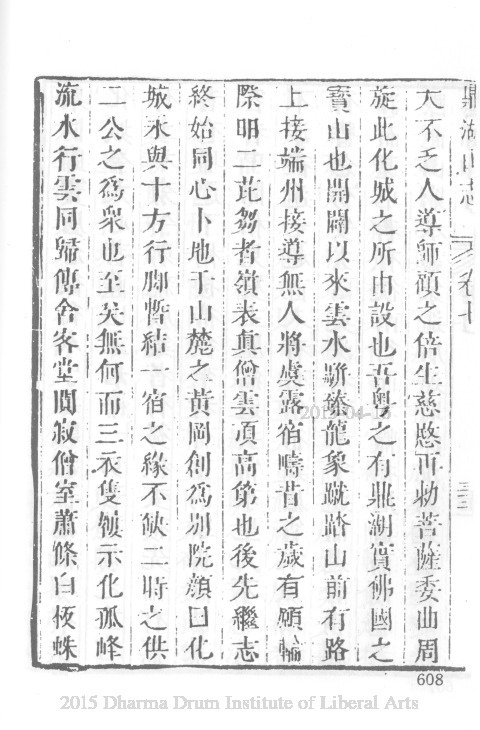 鼎湖山志 卷七
大不乏人導師顧之倍生慈愍再勅菩薩委曲周
旋此化城之所由設也吾粵之有鼎湖實佛國之
寶山也開闢以來雲水駢臻龍象蹴踏山前有路
上接端州接導無人將虞露宿疇昔之歲有願輪
際明二苾芻者嶺表真僧雲頂高第也後先繼志
終始同心卜地于山麓之黃岡創為別院顏曰化
城永與十方行腳暫結一宿之緣不缺二時之供
二公之為眾也至矣無何而三衣隻履示化孤峰
流水行雲同歸傳舍客堂闃寂僧室蕭條白板蛛
608
2015 Dharma Drum Institute of Liberal Arts